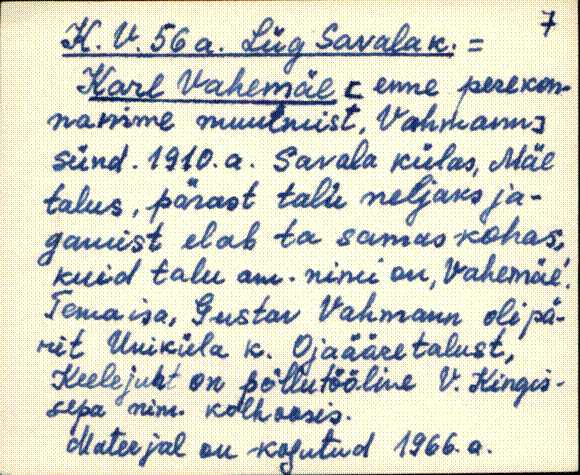 7
K. V. 56 a. Lüg Savala k. =
Karl Vahemäe [ enne perekon-
nanime muutmist, Vahmann]
sünd. 1910. a. Savala külas, Mäe
talus, pärast talu neljaks ja-
gamist elab ta samas kohas,
kuid talu am. nimi on „Vahemäe".
Tema isa, Gustav Vahmann oli pä-
rit Uniküla k. Ojaääre talust,
Keelejuht on põllutööline V. Kingis-
sepa nim. kolhoosis.
Materjal on kogutud 1966. a.